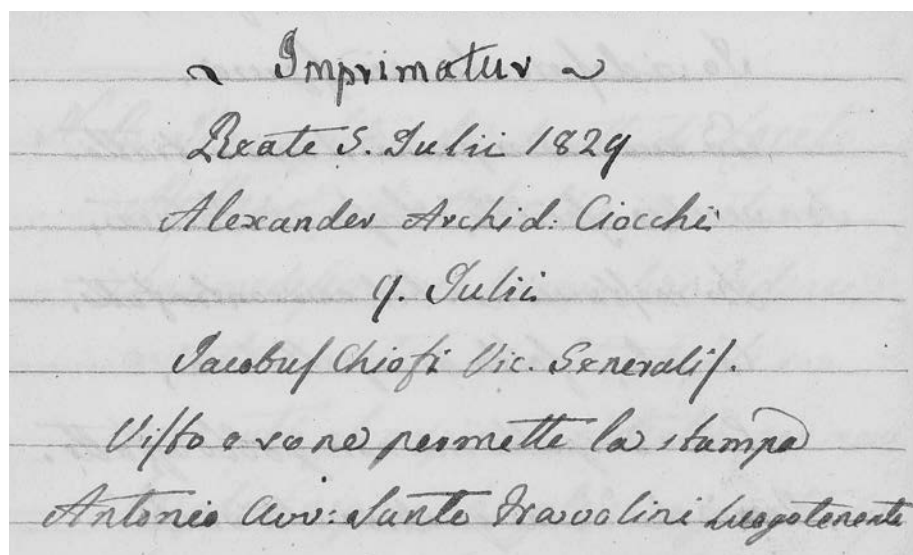 ~ Imprimatur ~
Reate 5. Julii 1829
Alexander Archid: Ciocchi
9. Julii
Jacobus Chiofi Vic. Generalis.
Visto e se ne permette la stampa
Antonio Avv: Santo Travolini Luogotenente